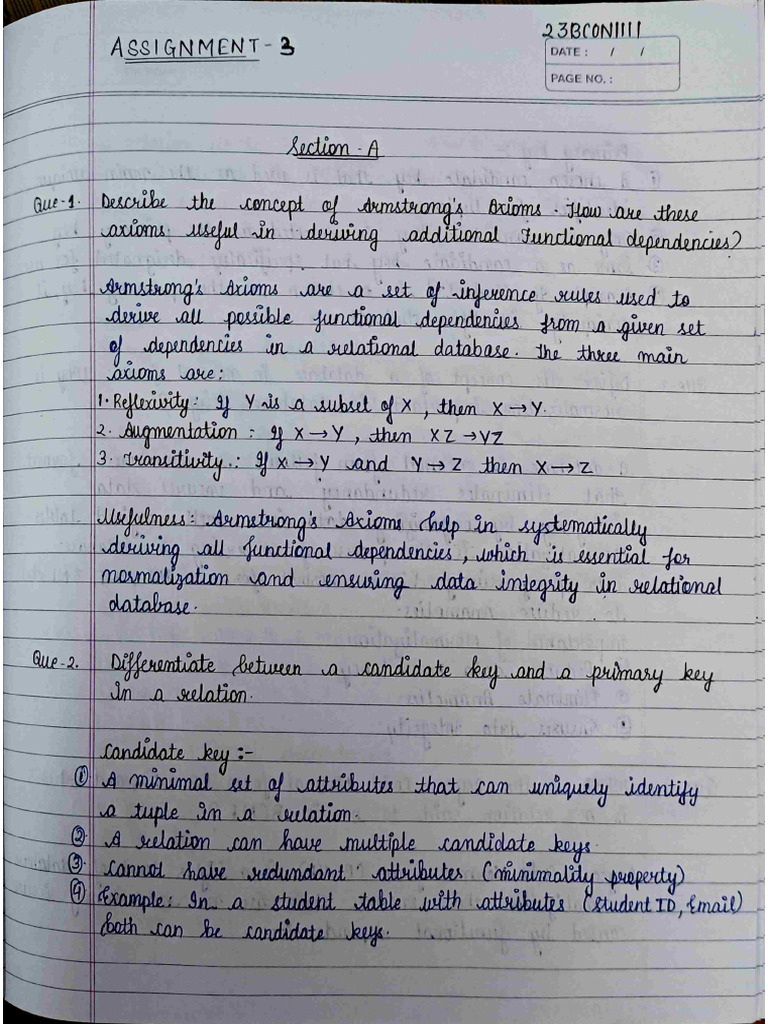 23BCON1111
ASSIGNMENT - 3
DATE : / /
PAGE NO. :
Section - A
Que-1. Describe the concept of Armstrong's Axioms. How are these
axioms useful in deriving additional Functional dependencies?
Armstrong's Axioms are a set of inference rules used to
derive all possible functional dependencies from a given set
of dependencies in a relational database. The three main
axioms are:
1. Reflexivity: If Y is a subset of X, then X → Y.
2. Augmentation : If X → Y, then XZ → YZ
3. Transitivity.: If X → Y and Y → Z then X → Z
Usefulness: Armstrong's Axioms help in systematically
deriving all functional dependencies, which is essential for
normalization and ensuring data integrity in relational
database.
Que-2. Differentiate between a candidate key and a primary key
in a relation.
Candidate key :-
① A minimal set of attributes that can uniquely identify
a tuple in a relation.
② A relation can have multiple candidate keys.
③ Cannot have redundant attributes (minimality property)
④ Example: In a student table with attributes (Student ID, Email)
both can be candidate keys.